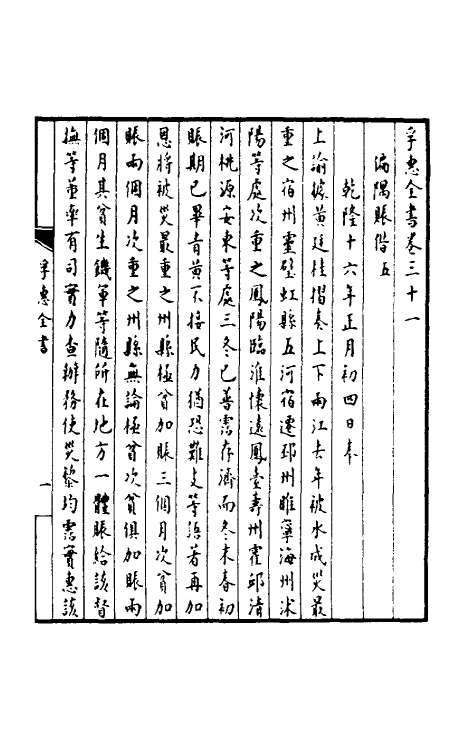 孚惠全書卷三十一
偏隅賬借五
乾隆十六年正月初四日奉
上諭據黃廷桂摺奏上下兩江去年被水成災最
重之宿州靈璧虹縣五河宿遷邳州睢寧海州沭
陽等處次重之鳳陽臨淮懷遠鳳臺壽州霍邱清
河桃源安東等處三冬已普霑存濟而冬末春初
賬期已畢青黃不接民力猶恐難支等語著再加
恩將被災最重之州縣極貧加賬三個月次貧加
賬兩個月次重之州縣無論極貧次貧俱加賬兩
個月其貧生饑軍等隨所在地方一體賬給該督
撫等董率有司實力查辦務使災黎均霑實惠該
孚惠全書
一